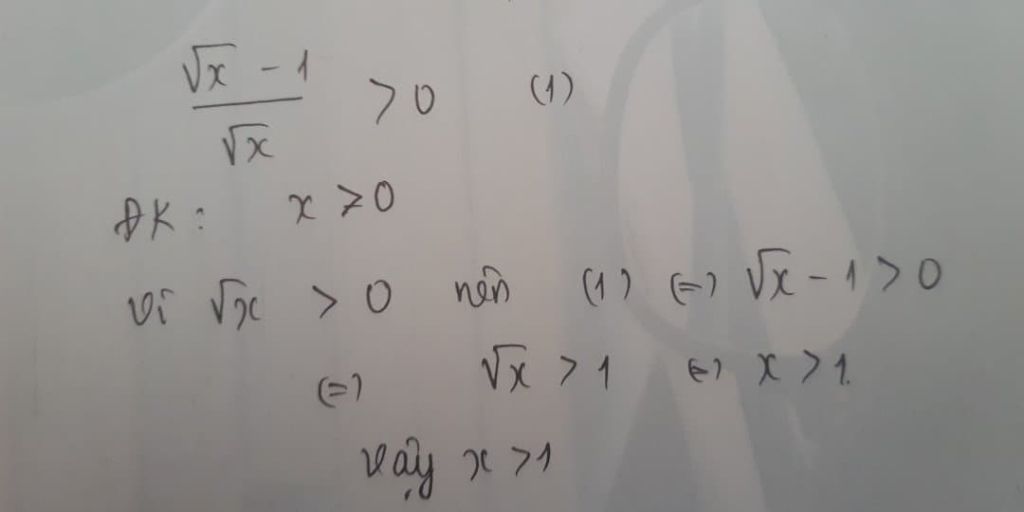 (√x - 1)/√x > 0 (1)
ĐK: x > 0
Vì √x > 0 nên (1) (=) √x - 1 > 0
(=) √x > 1 (=) x > 1.
Vậy x > 1